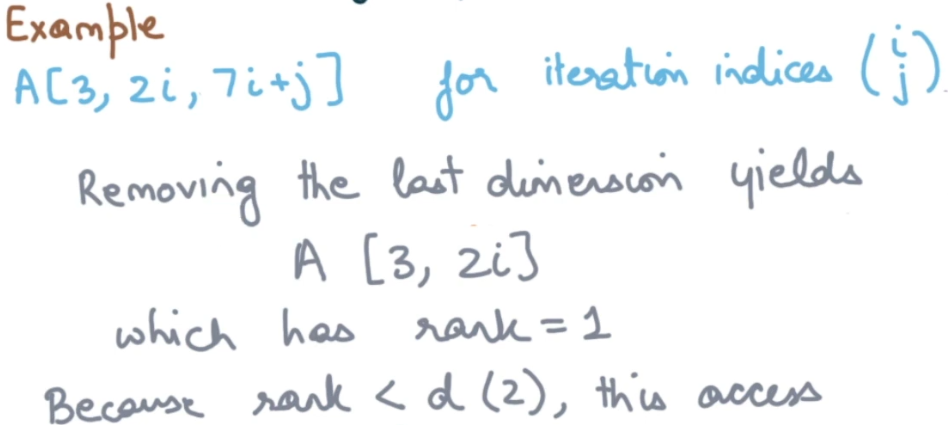 Example
A[3, 2i, 7i+j] for iteration indices (i j).
Removing the last dimension yields
A [3, 2i]
which has rank = 1
Because rank < d (2), this access